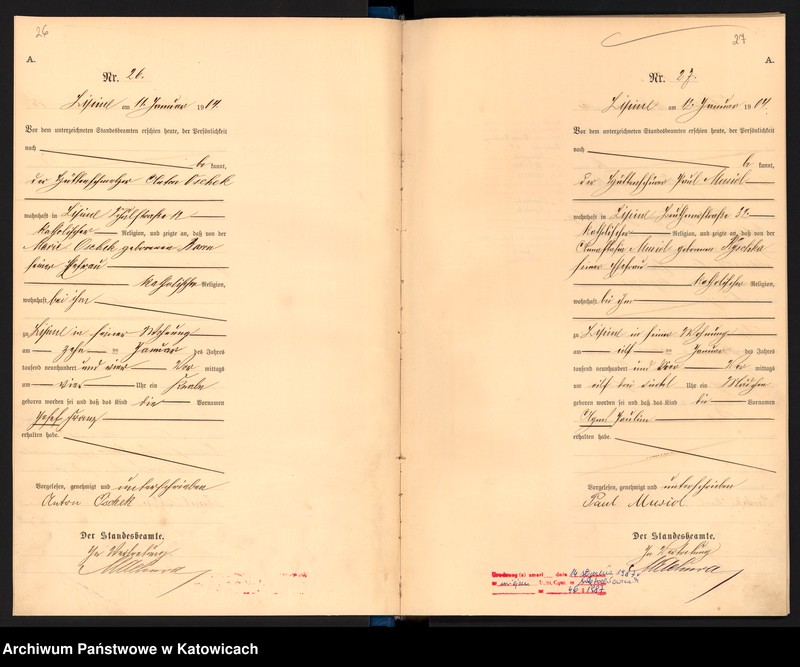 26
A.
Nr. 26.
Lipine am 11. Januar 1904.
Vor dem unterzeichneten Standesbeamten erschien heute, der Persönlichkeit
nach
be kannt,
der Hüttenschmelzer Anton Oschek
wohnhaft in Lipine
katholischer Religion, und zeigte an, daß von der
Marie Oschek geborenen
seiner Ehefrau
katholischer Religion,
wohnhaft bei ihm
zu Lipine in seiner Wohnung
am zehn ten Januar des Jahres
tausend neunhundert und vier Vor mittags
um vier Uhr ein Knabe
geboren worden sei und daß das Kind die Vornamen
Josef Franz
erhalten habe.
Vorgelesen, genehmigt und unterschrieben
Anton Oschek
Der Standesbeamte.
In Vertretung
27
A.
Nr. 27.
Lipine am 12. Januar 1904.
Vor dem unterzeichneten Standesbeamten erschien heute, der Persönlichkeit
nach
be kannt,
der Paul Musiol
wohnhaft in Lipine
katholischer Religion, und zeigte an, daß von der
Musiol geborenen
seiner Ehefrau
katholischer Religion,
wohnhaft bei ihm
zu Lipine in seiner Wohnung
am elf ten Januar des Jahres
tausend neunhundert und vier Vor mittags
um elf drei Uhr ein Mädchen
geboren worden sei und daß das Kind die Vornamen
Agnes Paulina
erhalten habe.
Vorgelesen, genehmigt und unterschrieben
Paul Musiol
Der Standesbeamte.
In Vertretung
1987
Archiwum Państwowe w Katowicach